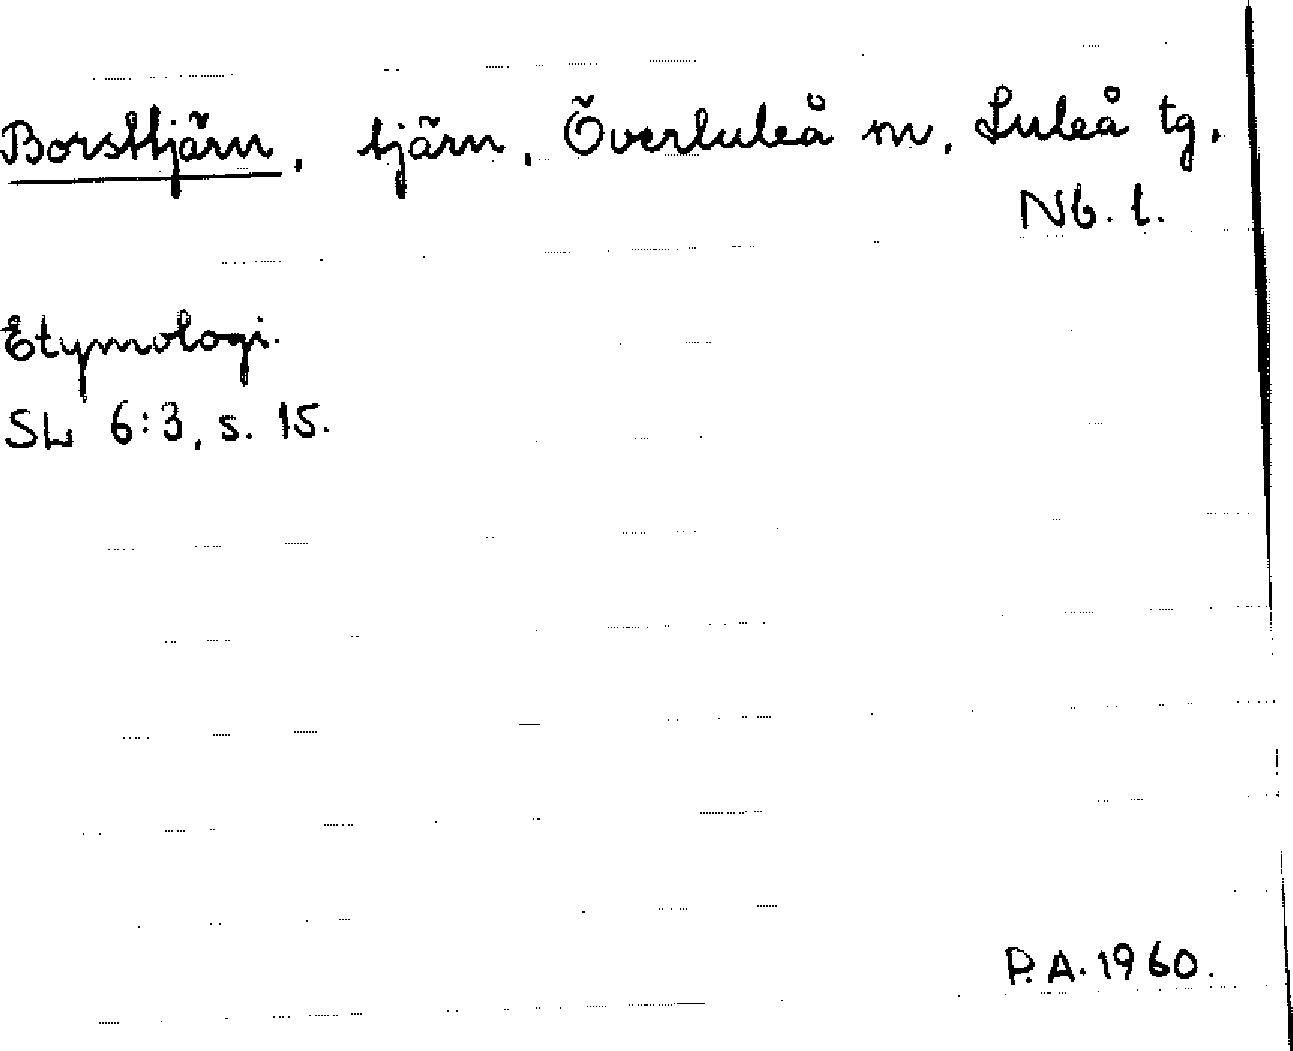 Borsttjärn, tjärn, Överluleå sn, Luleå tg.
Nb. l.
Etymologi.
SL 6:3, s. 15.
P.A. 1960.